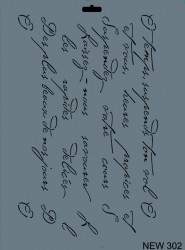 O temps, suspends ton vol
Et vous, heures propices
Suspendez votre cours S
Laissez-nous savourer
les rapides délices
Des plus beaux de nos jours
NEW 302